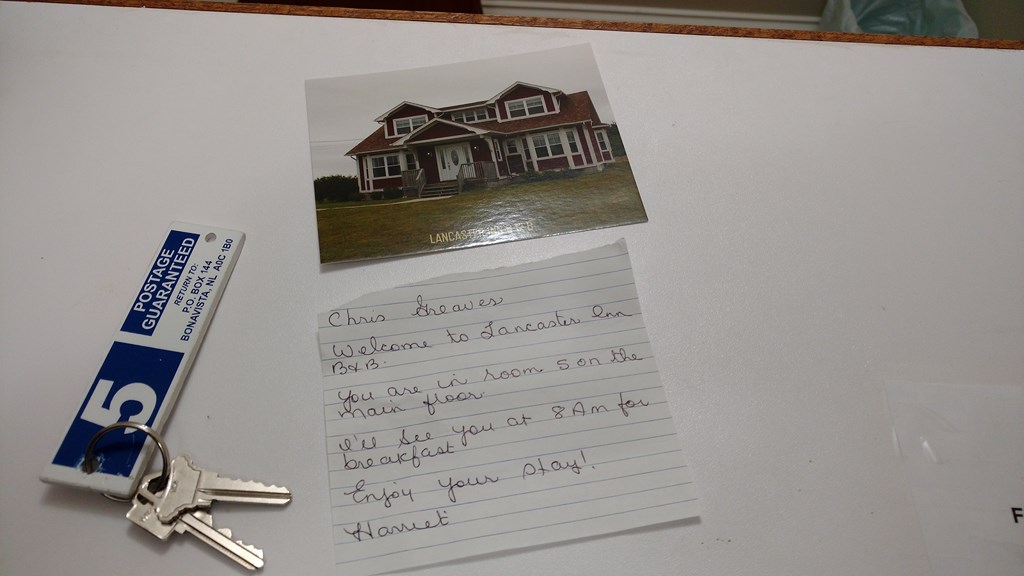 LANCASTER INN B&B
5
POSTAGE
GUARANTEED
RETURN TO:
P.O. BOX 144
BONAVISTA, NL A0C 1B0
Chris Greaves
Welcome to Lancaster Inn
B&B.
You are in room 5 on the
main floor
I'll see you at 8 Am for
breakfast
Enjoy your stay!
Harriet
F